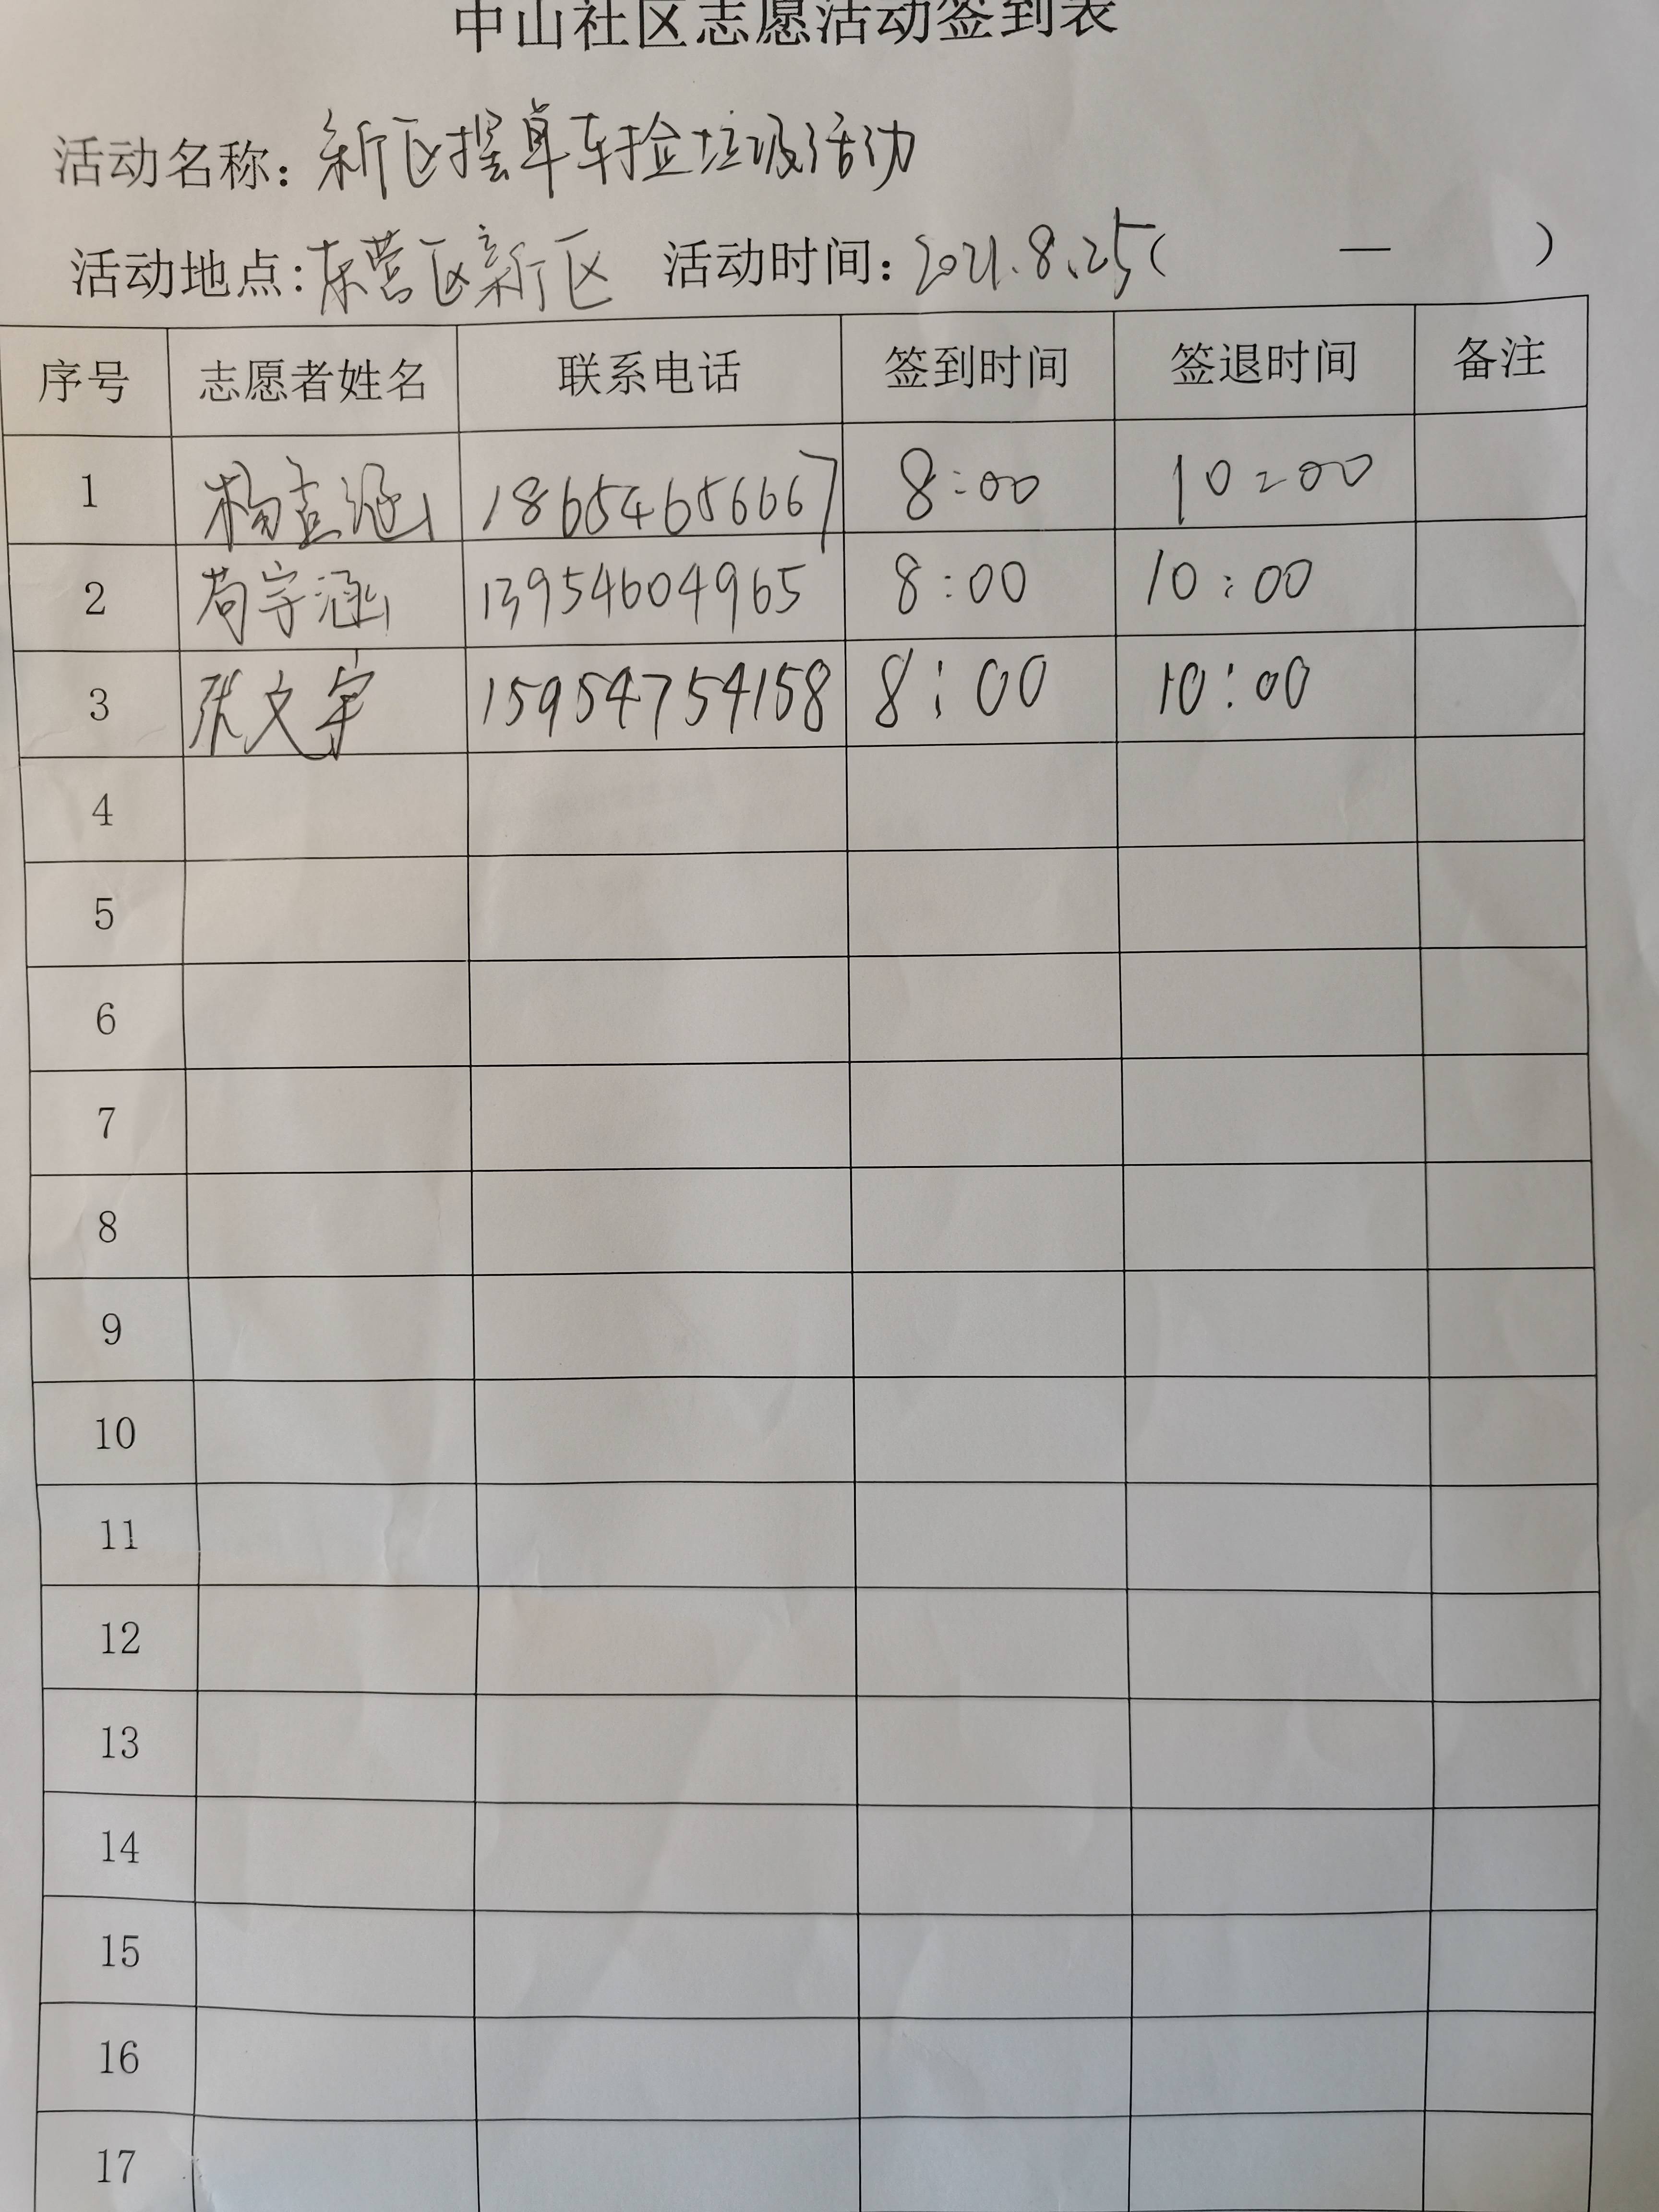 中山社区志愿活动签到表
活动名称：新区摆单车捡垃圾活动
活动地点：东营区新区 活动时间：2021.8.25（ — ）
序号 志愿者姓名 联系电话 签到时间 签退时间 备注
1 杨吉涵 18654656667 8:00 10:00
2 苟宇涵 13954604965 8:00 10:00
3 张文宇 15954754158 8:00 10:00
4
5
6
7
8
9
10
11
12
13
14
15
16
17